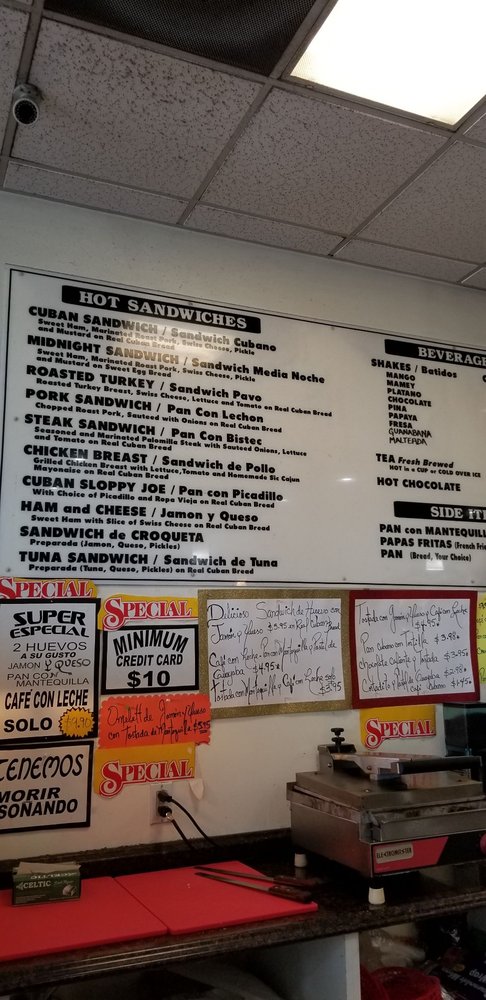 HOT SANDWICHES
CUBAN SANDWICH / Sandwich Cubano
Sweet Ham, Marinated Roast Pork, Swiss Cheese, Pickle
and Mustard on Real Cuban Bread
MIDNIGHT SANDWICH / Sandwich Media Noche
Sweet Ham, Marinated Roast Pork, Swiss Cheese, Pickle
and Mustard on Sweet Egg Bread
ROASTED TURKEY / Sandwich Pavo
Roasted Turkey Breast, Swiss Cheese, Lettuce and Tomato on Real Cuban Bread
PORK SANDWICH / Pan Con Lechon
Chopped Roast Pork, Sauteed with Onions on Real Cuban Bread
STEAK SANDWICH / Pan Con Bistec
Seasoned and Marinated Palomilla Steak with Sauteed Onions, Lettuce
and Tomato on Real Cuban Bread
CHICKEN BREAST / Sandwich de Pollo
Grilled Chicken Breast with Lettuce, Tomato and Homemade Sic Cajun
Mayonaise on Real Cuban Bread
CUBAN SLOPPY JOE / Pan con Picadillo
With Choice of Picadillo and Ropa Vieja on Real Cuban Bread
HAM and CHEESE / Jamon y Queso
Sweet Ham with Slice of Swiss Cheese on Real Cuban Bread
SANDWICH de CROQUETA
Preparada (Jamon, Queso, Pickles)
TUNA SANDWICH / Sandwich de Tuna
Preparada (Tuna, Queso, Pickles) on Real Cuban Bread
BEVERAGE
SHAKES / Batidos
MANGO
MAMEY
PLATANO
CHOCOLATE
PINA
PAPAYA
FRESA
GUANABANA
MALTEADA
TEA Fresh Brewed
HOT IN A CUP or COLD OVER ICE
HOT CHOCOLATE
SIDE
PAN con MANTEQUILL
PAPAS FRITAS (French Frie
PAN (Bread, Your Choice)
SPECIAL
SUPER
ESPECIAL
2 HUEVOS
A SU GUSTO
JAMON Y QUESO
PAN CON
MANTEQUILLA
CAFE CON LECHE
SOLO
TENEMOS
MORIR
SOÑANDO
SPECIAL
MINIMUM
CREDIT CARD
$10
Omelett de Jamón y Queso
con Tostada de Mantequilla $5.95
SPECIAL
Delicioso Sandwich de Huevo con
Jamón y Queso $5.95 en Pan Cubano
Café con Leche, Pan con Mantequilla y Pastel de
Guayaba $4.95
Tostada con Mantequilla y Café con Leche solo
$3.95
Tostada con Jamón y Queso y Café con Leche
$4.95
Pan Cubano con Tortilla $3.98
Chocolate Caliente y Tostada $3.95
Cortadito y Pastel de Guayaba $2.98
Café Cubano $1.45
SPECIAL
ELECTROMASTER
CELTIC